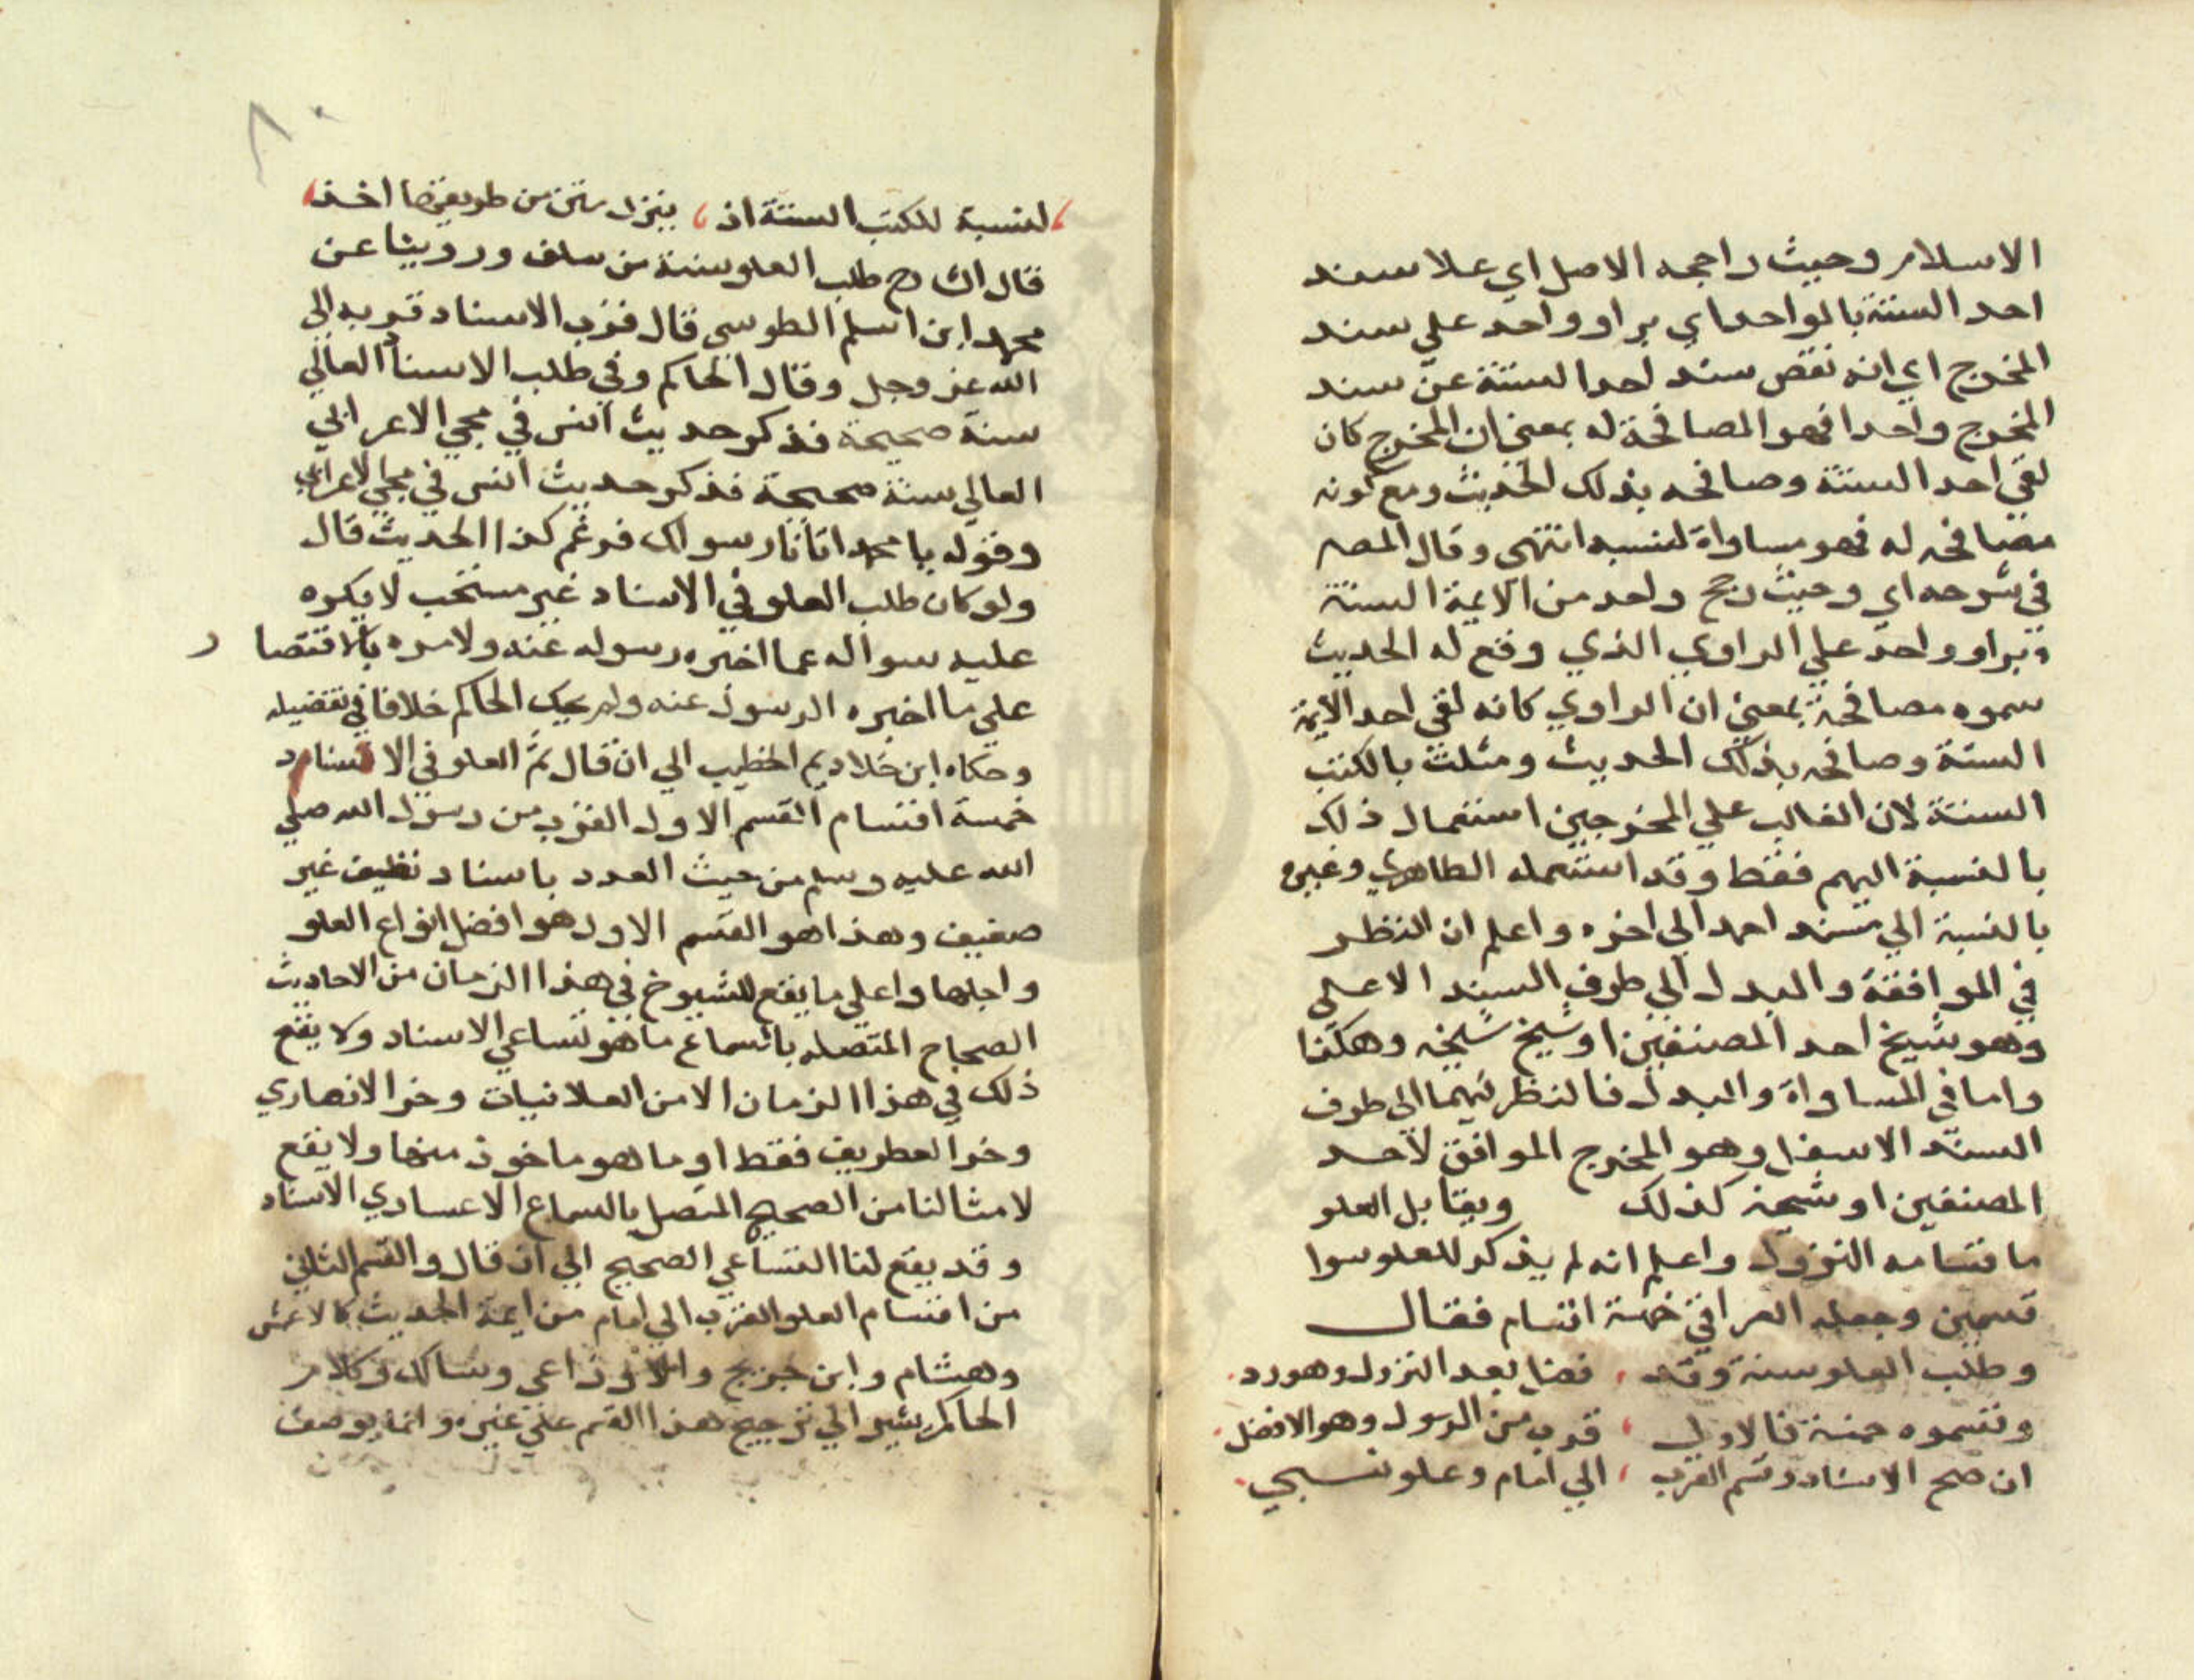 الاسلام وحيث راجحه الاصل اي علا سند
احد الستة بالواحد اي براو واحد علي سند
المخرج اي انه نقص سند احد الستة عن سند
المخرج واحدا فهو المصافحة له بمعني ان المخرج كان
لقي احد الستة وصافحه بذلك الحديث ومع كونه
مصافحه له فهو مساواة لنسبه انتهي وقال المصه
في شرحه اي وحيث رجح واحد من الايمة الستة
وبراو واحد علي الراوي الذي وقع له الحديث
سموه مصافحة بمعني ان الراوي كانه لقي احد الايمة
الستة وصافحه بذلك الحديث ومثلت بالكتب
الستة لان الغالب علي المخرجين استعمال ذلك
بالنسبة اليهم فقط وقد استعمله الطاهري وغيره
بالنسبة الي مسند احمد الي اخره واعلم ان النظر
في الموافقة والبدل الي طرف السند الاعلي
وهو شيخ احد المصنفين او شيخ شيخه وهكذا
واما في المساواة والبدل فالنظر فيهما الي طرف
السند الاسفل وهو المخرج الموافق لاحد
المصنفين او شيخه كذلك ويقابل العلو
ماقسامه النزول واعلم انه لم يذكر للعلو سوا
قسمين وجعله العراقي خمسة اقسام فقال
وطلب العلو سنة وقد ، فضل بعد النزول وهو رد
وقسموه خمسة فالاول ، قرب من الرسول وهو الافضل
ان صح الاسناد وقسم القرب ، الي امام وعلو نسبي
لنسبة للكتب الستة اذ ، ينزل متن من طريقها اخذ
قال الشارح طلب العلو سنة من سلف وروينا عن
محمد ابن اسلم الطوسي قال قرب الاسناد قربه الي
الله عز وجل وقال الحاكم وفي طلب الاسناد العالي
سنة صحيحة فذكر حديث انس في مجي الاعرابي
العالي سنة صحيحة فذكر حديث انس في مجي الاعرابي
وقوله يا محمد اتانا رسولك فزعم كذا الحديث قال
ولو كان طلب العلو في الاسناد غير مستحب لا يكره
عليه سواله عما اخبره رسوله عنه ولامره بالاقتصار
علي ما اخبره الرسول عنه ولم يحك الحاكم خلافا في تفضيله
وحكاه ابن خلاد ثم الخطيب الي ان قال ثم العلو في الاسناد
خمسة اقسام القسم الاول القرب من رسول الله صلي
الله عليه وسلم من حيث العدد باسناد نظيف غير
ضعيف وهذا هو القسم الاول هو افضل انواع العلو
واجلها واعلي ما يقع للشيوخ في هذا الزمان من الاحاديث
الصحاح المتصله بالسماع ما هو تساعي الاسناد ولا يقع
ذلك في هذا الزمان الا من الغلانيات وخز الانصاري
وخز الغطريف فقط او ما هو ماخوذ منها ولا يقع
لامثالنا من الصحيح المتصل بالسماع الا عساري الاسناد
وقد يقع لنا التساعي الصحيح الي ان قال والقسم الثاني
من اقسام العلو القرب الي امام من ايمة الحديث كالاعمش
وهشام وابن جريج والاوزاعي ومالك وكلام
الحاكم يشير الي ترجيح هذا القسم علي غيره وانه يوصف